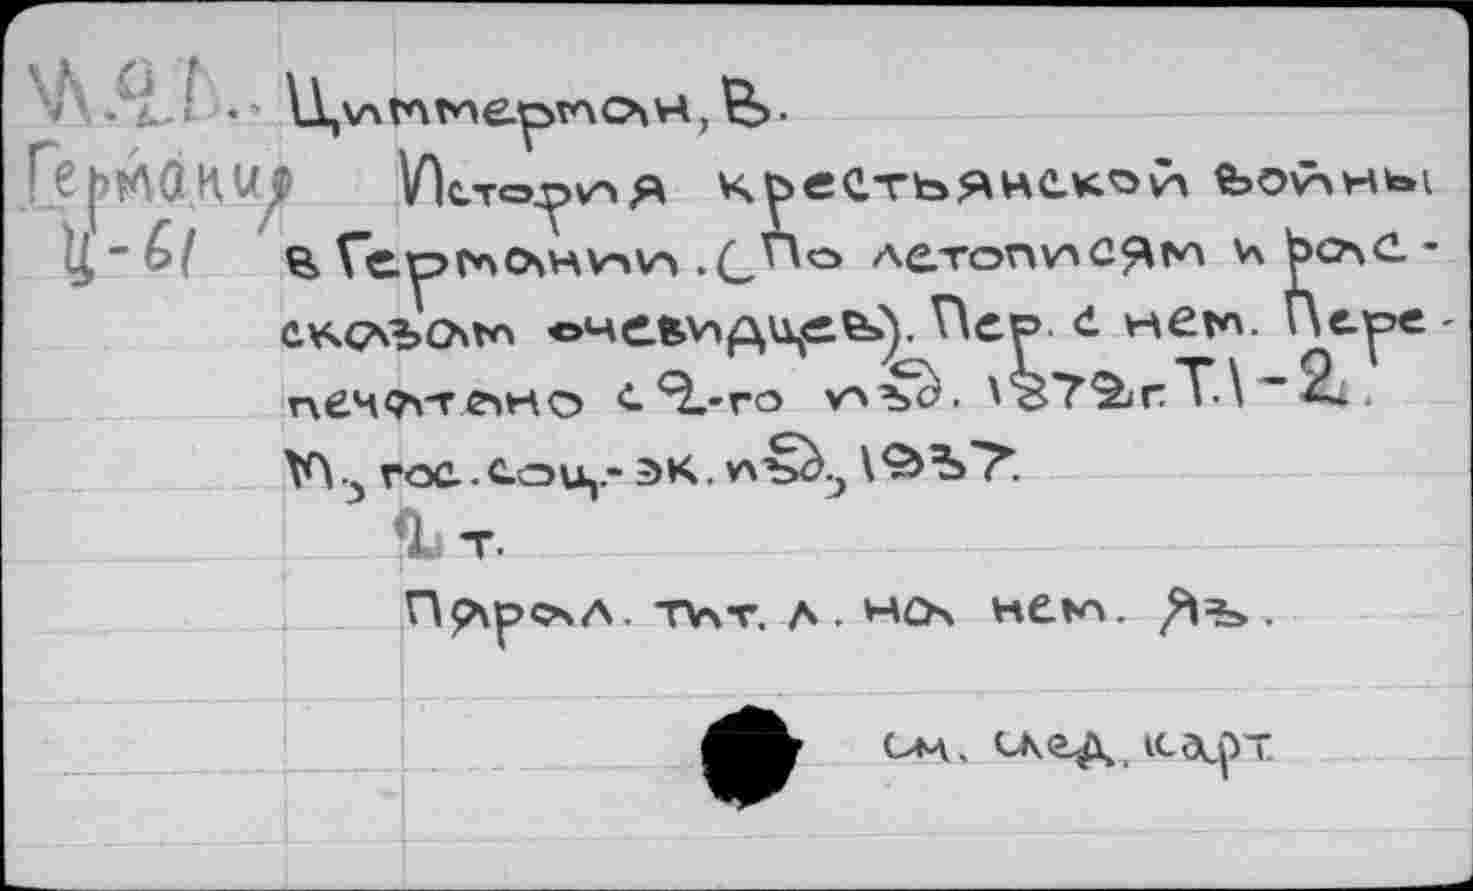 И.91.. Циммерман, В.
Германия История крестьянской войны
Ц-61 в Германии. (По летописям и расс-
сказам очевидцев). Пер. с нем. Пере-
печатано с 2-го изд. 1872г. Т.1-2.
М., гос. соц.-эк. изд., 1937.
2 т.
Парал. тит. л. на нем. яз.
см. след. карт.